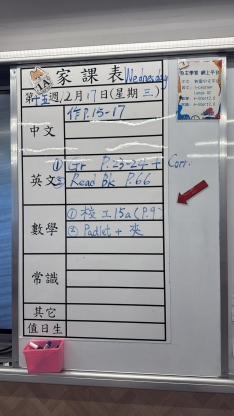 1A
家課表 Wednesday
第十五週12月17日(星期三)
中文 作P.15-17
英文 ① Gr P.23-24 + Corr.
② Read Bk P.66
數學 ① 校工15a(P.9)
② Padlet + 夾
常識
其它
值日生
自主學習 網上平台